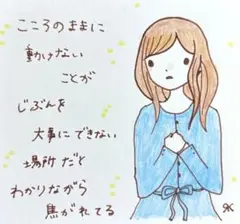 こころのままに
動けない
ことが
じぶんを
大事にできない
場所だと
わかりながら
焦がれてる